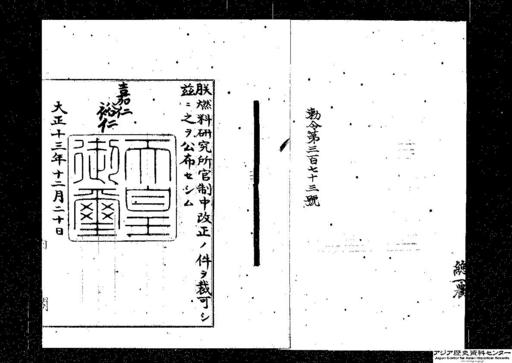 勅令第三百七十三號
朕燃料研究所官制中改正ノ件ヲ裁可シ
茲ニ之ヲ公布セシム
嘉仁
裕仁
天皇御璽
大正十三年十二月二十日
アジア歴史資料センター
Japan Center for Asian Historical Records